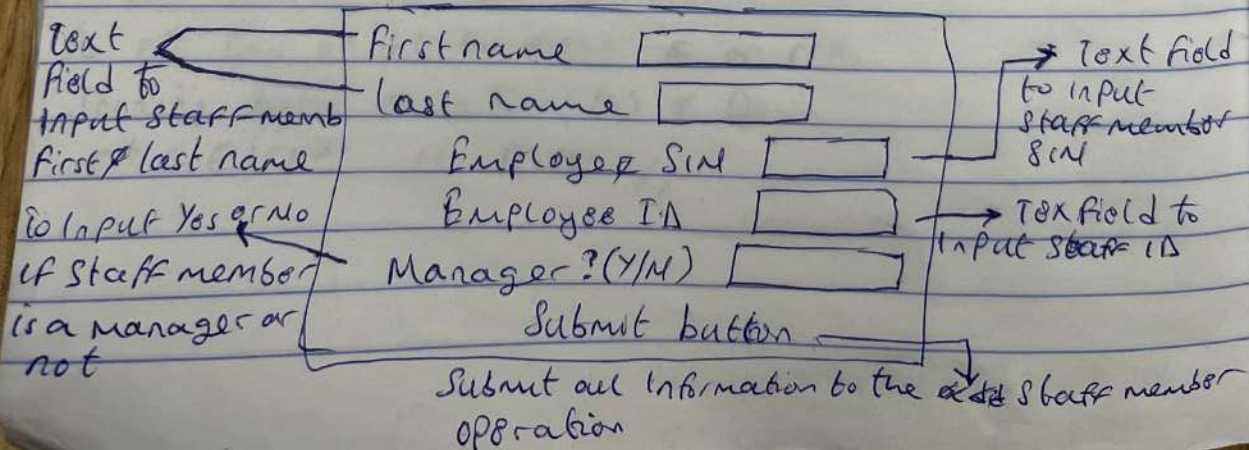 Text
field to
Input Staff memb
first & last name
To Input Yes or No
if Staff member
is a manager or
not
first name
last name
Employee SIN
Employee ID
Manager?(Y/N)
Submit button
Text field
to input
staff member
SIN
Tex field to
Input Staff ID
Submit all Information to the add Staff member
operation